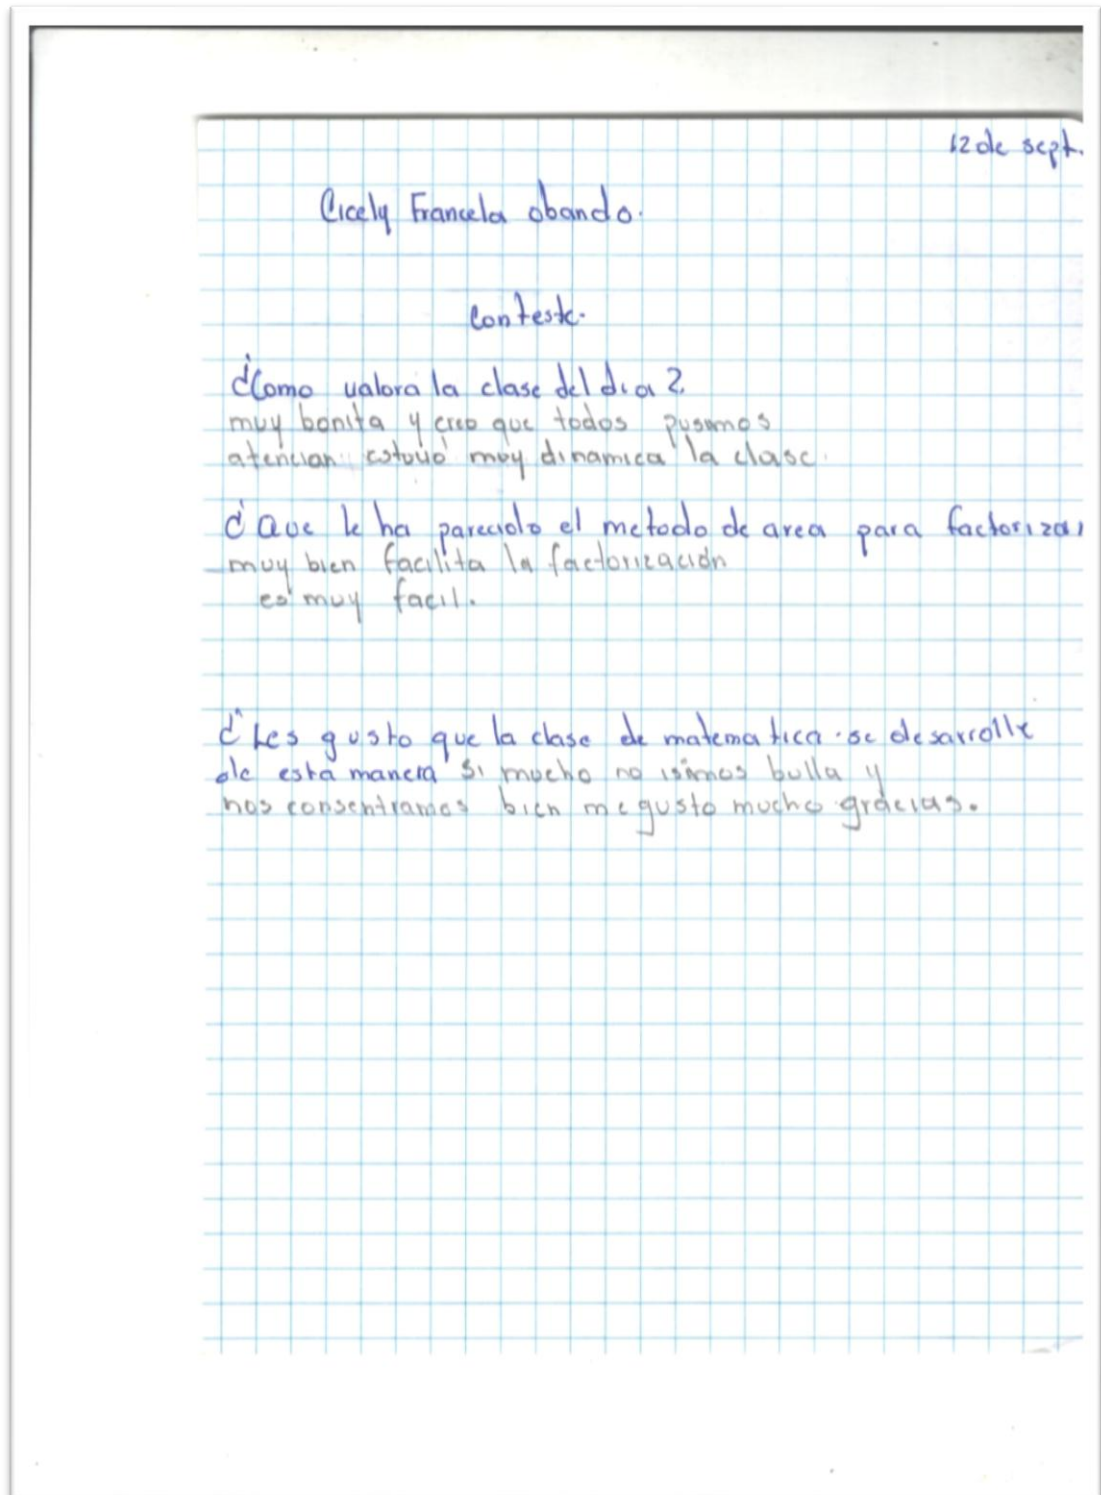 12 de sept.
Cicely Francela obando.
Conteste.
¿Como valora la clase del dia?
muy bonita y creo que todos pusimos
atencian estuvo muy dinamica la clase.
¿Que le ha parecido el metodo de area para factorizar
muy bien facilita la factorización
es muy facil.
¿Les gusto que la clase de matematica se desarrolle
de esta manera si mucho no isimos bulla y
nos consentramos bien me gusto mucho gracias.